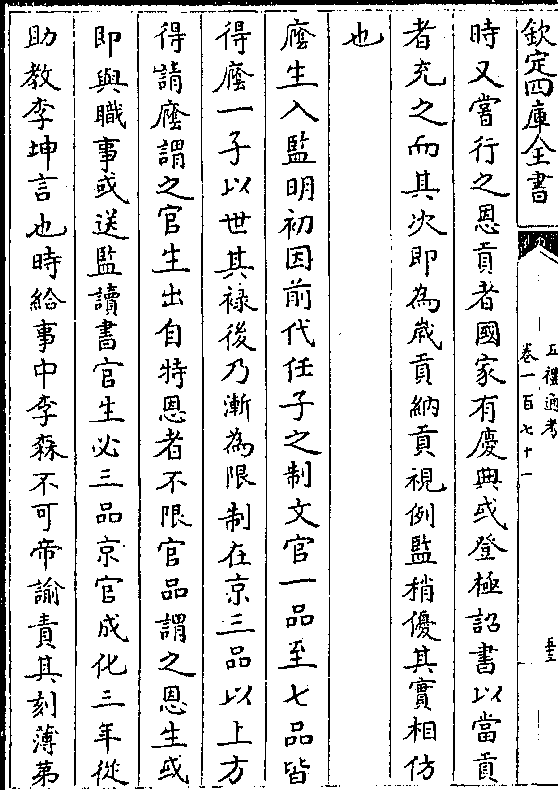 欽定四庫全書
五禮通考
卷一百七十一
時又嘗行之恩貢者國家有慶典或登極詔書以當貢
者充之而其次即為嵗貢納貢視例監稍優其實相仿
也
廕生入監明初因前代任子之制文官一品至七品皆
得廕一子以世其禄後乃漸為限制在京三品以上方
得請廕謂之官生出自特恩者不限官品謂之恩生或
即與職事或送監讀書官生必三品京官成化三年從
助教李坤言也時給事中李森不可帝諭責其刻薄第